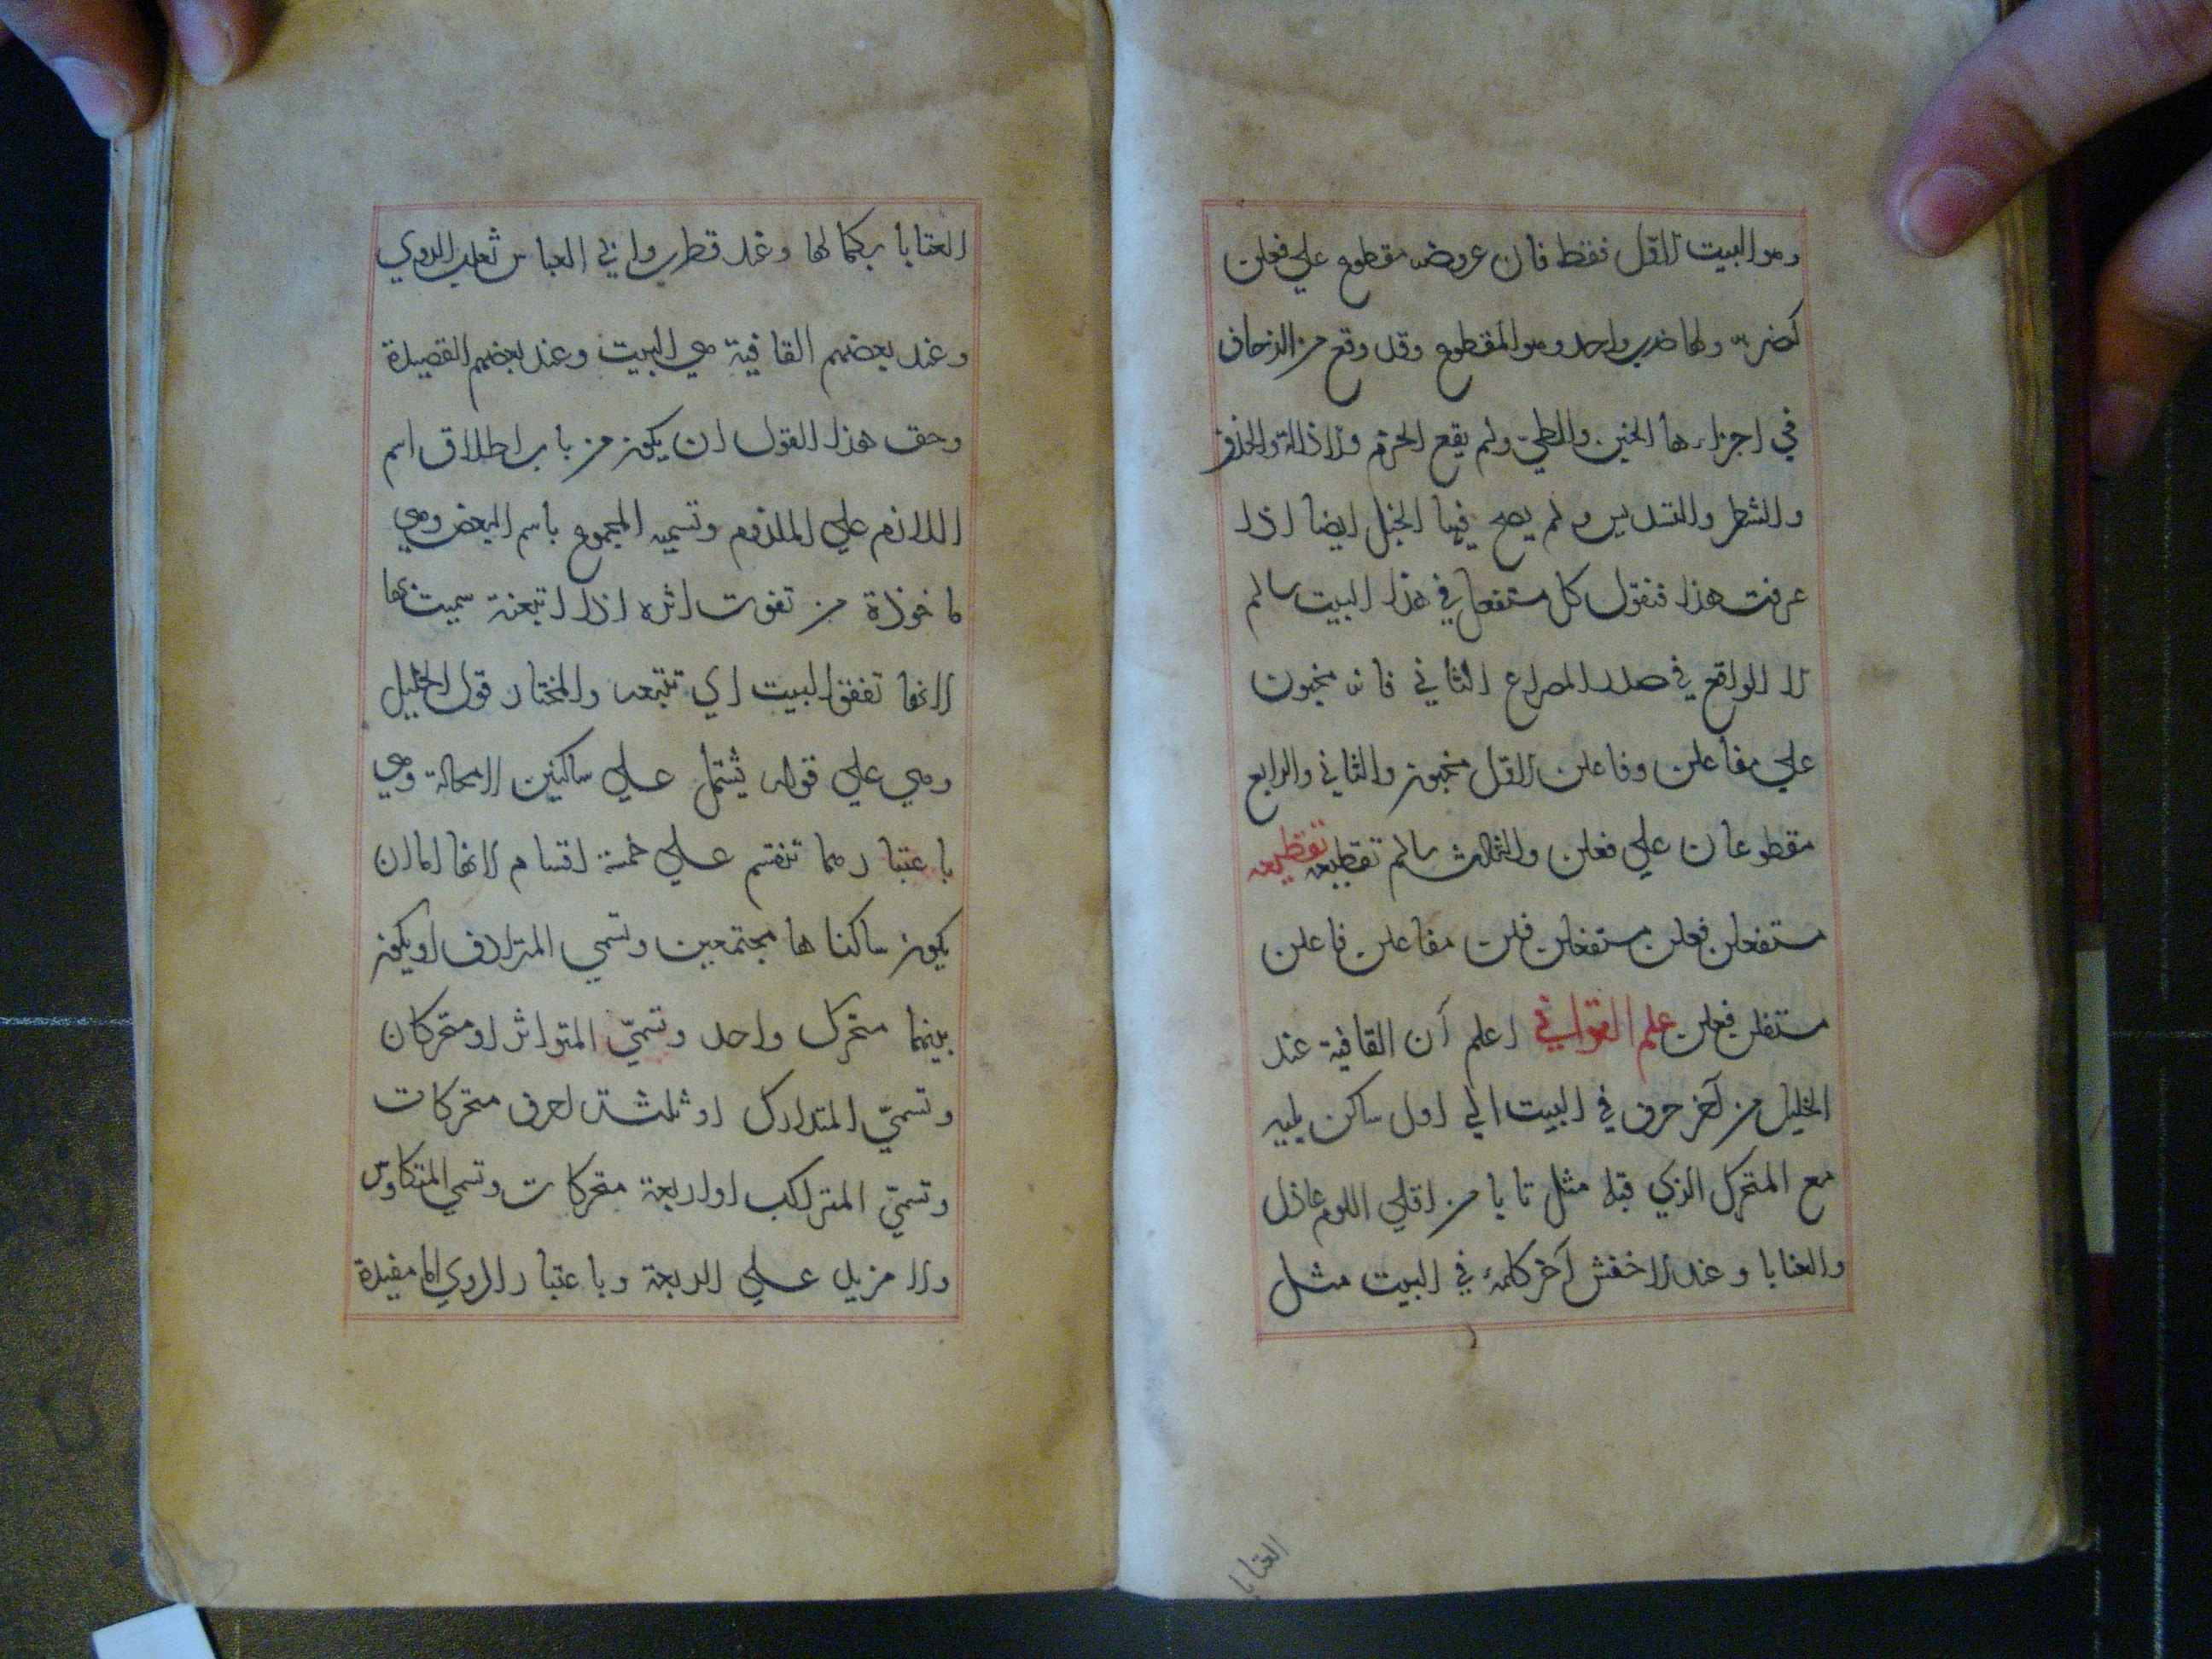 وهو البيت الاول فقط فان عروضه مقطوع على فعلن
كضربه ولها ضرب واحد وهو المقطوع وقد وقع من الزحاف
في اجزاءها الخبن والطي ولم يقع الخرم والاذالة والحذف
والشطر والتسديس ولم يصح فيها الخبل ايضا اذا
عرفت هذا فنقول كل مستفعلن في هذا البيت سالم
الا الواقع في صدر المصراع الثاني فانه مخبون
علي مفاعلن وفاعلن الاول مخبون والثاني والرابع
مقطوعان علي فعلن والثالث سالم تقطيعه تقطيعه
مستفعلن فعلن مستفعلن فعلن مفاعلن فاعلن
مستفعلن فعلن علم القوافي اعلم ان القافية عند
الخليل من آخر حرف في البيت الي اول ساكن يليه
مع المتحرك الذي قبله مثل تابا من اقلي اللوم عاذل
والعتابا وعند الاخفش آخر كلمة في البيت مثل
العتابا
العتابا بكمالها وعند قطرب وابي العباس ثعلب الروي
وعند بعضهم القافية هي البيت وعند بعضهم القصيدة
وحق هذا القول ان يكون من باب اطلاق اسم
اللازم علي الملزوم وتسميه المجموع باسم البعض وهي
ماخوذة من تقفوت اثره اذا اتبعته سميت بها
لانها تقفو البيت اي تتبعه والمختار قول الخليل
وهي علي قوله يشتمل علي ساكنين لامحالة وهي
باعتبارهما تنقسم علي خمسة اقسام لانها اما ان
يكون ساكناها مجتمعين وتسمي المترادف او يكون
بينهما متحرك واحد وتسمّي المتواتر او متحركان
وتسمّي المتدارك او ثلثة احرف متحركات
وتسمّي المتراكب او اربعة متحركات وتسمي المتكاوس
ولا مزيد علي الاربعة وباعتبار الروي اما مقيدة